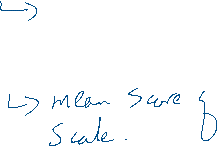 ↳
↳ mean score of
scale.